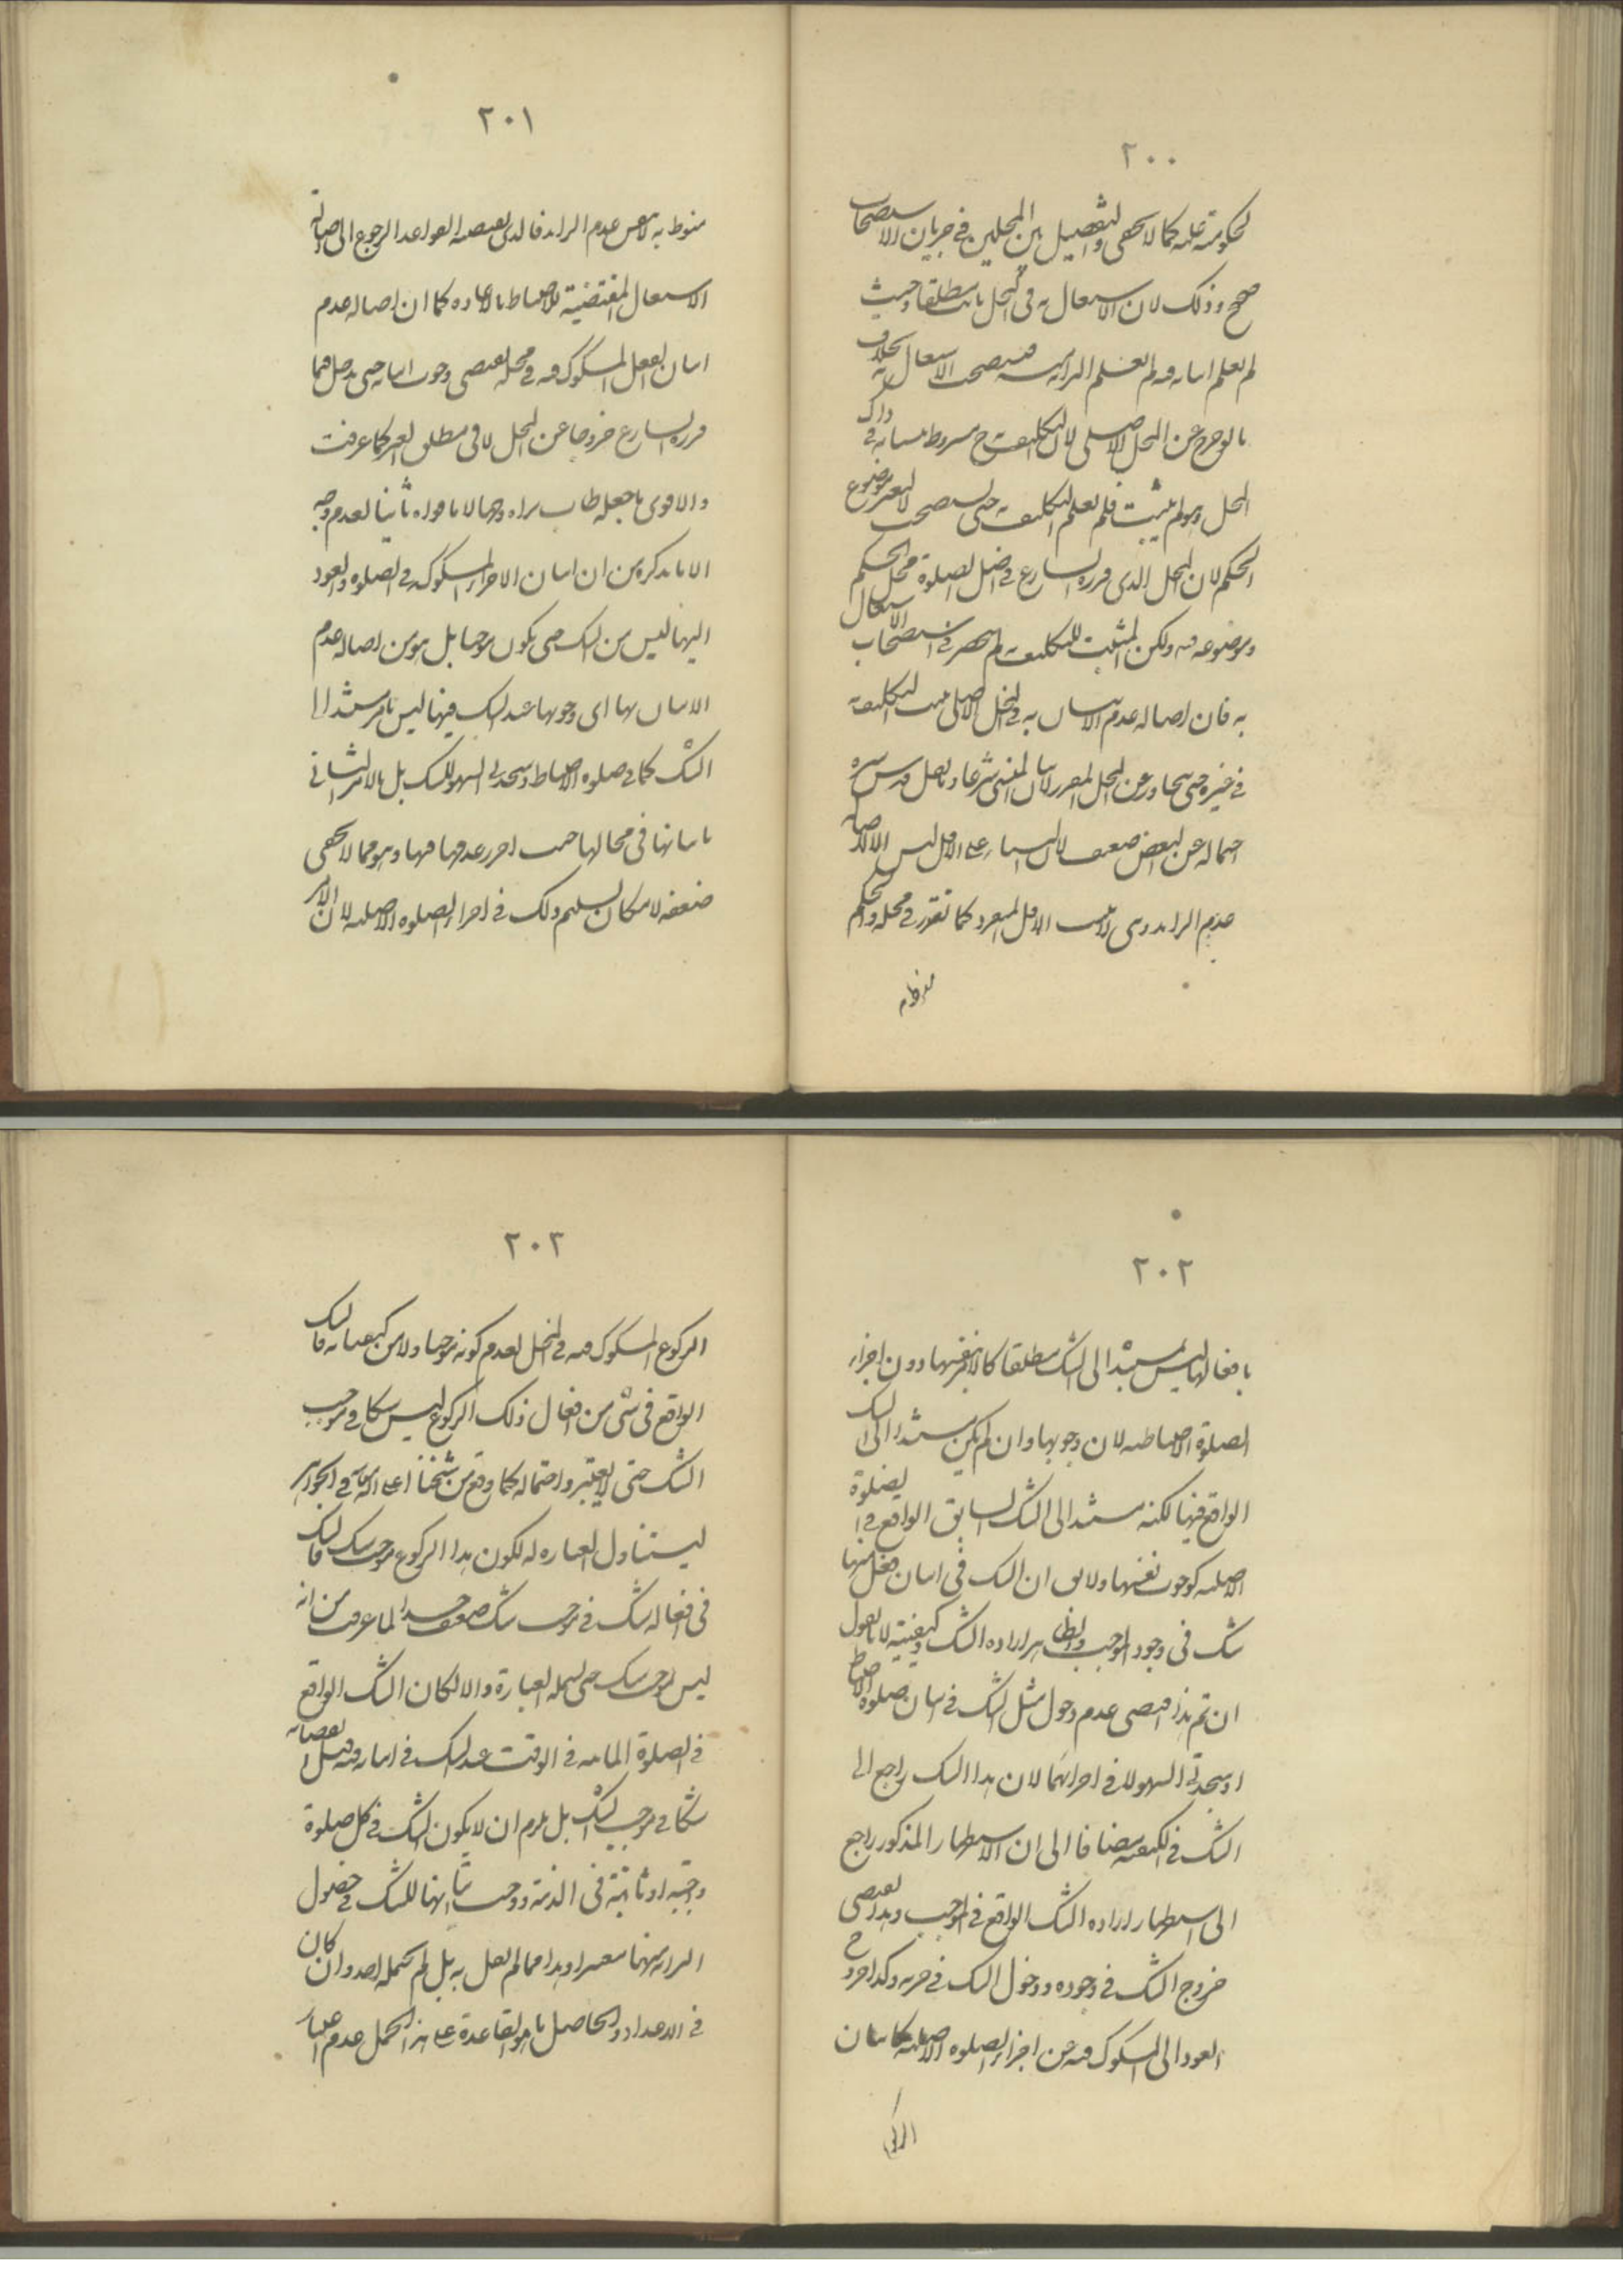 ٢٠٠
لحكومته عليه كما لا يخفى والتفصيل بين المحلين في جريان الاستصحاب
صحيح وذلك لان الاشتغال به في المحل ثابت مطلقا وحيث
لم يعلم اتيانه فيه لم يعلم البرائة منه فيستصحب الاشتغال به بخلاف
الخروج عن المحل الاصلي لان التكليف ح مشروط بنسيانه في ذاك
المحل وهو لم يثبت فلم يعلم التكليف حتى يستصحب لتغير موضوع
الحكم لان المحل الذي قرره الشارع في اصل الصلوة محل الحكم
وموضوعه فيه ولكن المثبت للتكليف لم ينحصر في استصحاب الاشتغال
به فان اصالة عدم الاتيان به في المحل الاصلي يثبت التكليف
في غيره حتى يتجاوز عن المحل المقرر لاتيان المنسي شرعا وما نقل قدس سره
احتماله عن البعض ضعيف لان البناء على الاقل ليس الا لاصالة
عدم الزائد وهي لا يثبت الاقل المنفرد كما تقرر في محله والحكم
منوط به
٢٠١
منوط به لا بنفس عدم الزائد فالذي يقتضيه القواعد الرجوع الى اصالة
الاشتغال المقتضية للاحتياط بالاعاده كما ان اصالة عدم
اتيان الفعل المشكوك فيه في محله يقتضي وجوب اتيانه حتى يدخل فيما
قرره الشارع خروجا عن المحل لا في مطلق الغير كما عرفت
والاقوى ما جعله طاب ثراه وجها لا ما قواه ثانيا لعدم وجه
الا ما يذكره من ان اتيان الاجزاء المشكوكة في الصلوة والعود
اليها ليس من الشك حتى يكون موجبا بل هو من اصالة عدم
الاتيان بها اى وجوبها عند الشك فيها ليس بامر مستند الى
الشك كما في صلوة الاحتياط وسجدتى السهو للشك بل بالامر الثاني
باتيانها في محالها حيث احرز عدمها فيها وهو مما لا يخفى
ضعفه لامكان تسليم ذلك في اجزاء الصلوة الاصلية لان الامر
٢٠٢
بافعالها ليس مستندا الى الشك مطلقا كالامر بنفسها دون اجزاء
الصلوة الاحتياطيه لان وجوبها وان لم يكن مستندا الى الشك
الواقع فيها لكنه مستند الى الشك السابق الواقع في الصلوة
الاصلية كوجوب نفسها ولا يق ان الشك في اتيان فعل منها
شك في وجود الموجب والظاهر ارادة الشك في كيفيته لانا نقول
ان تم هذا اقتضى عدم دخول مثل الشك في اتيان صلوة الاحتياط
او سجدتى السهو لا في اجزائهما لان هذا الشك راجع الى
الشك في الكيفية مضافا الى ان الاستظهار المذكور راجع
الى استظهار ارادة الشك الواقع في الموجب وهذا يقتضي
خروج الشك في وجوده ودخول الشك في جزئه وكذا خروج
العود الى المشكوك فيه من اجزاء الصلوة الاصلية كاتيان
الركوع
٢٠٣
الركوع المشكوك فيه في المحل لعدم كونه موجبا ولا من كيفياته فالشك
الواقع في شئ من افعال ذلك الركوع ليس شكا في موجب
الشك حتى لا يعتبر واحتماله كما وقع من شيخنا اعلى الله مقامه في الجواهر
ليتناول العبارة له لكون هذا الركوع موجب شك فالشك
في افعاله شك في موجب شك ضعيف جدا لما عرفت من انه
ليس موجب شك حتى يشمله العبارة والا لكان الشك الواقع
في الصلوة الماتية في الوقت عند الشك في اتيانه فيه قبل انقضائه
شكا في موجب الشك بل يلزم ان لا يكون الشك في كل صلوة
واجبة او ثابتة في الذمة ووجب اتيانها للشك في حصول
البرائة منها معتبرا وهذا مما لم يقل به بل لم يحتمله احد وان كان
في الاعداد والحاصل ما هو القاعدة على هذا المحمل عدم اعتبار